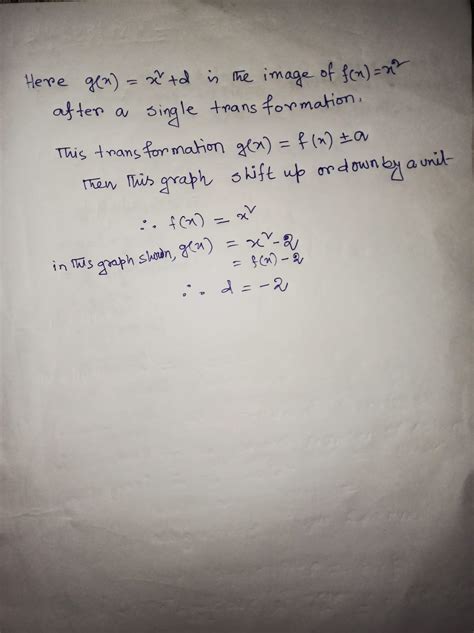 Here g(x) = x² + d is the image of f(x) = x²
after a single transformation.
This transformation g(x) = f(x) ± a
Then this graph shift up or down by a unit
∴ f(x) = x²
in this graph shown, g(x) = x² - 2
= f(x) - 2
∴ d = -2